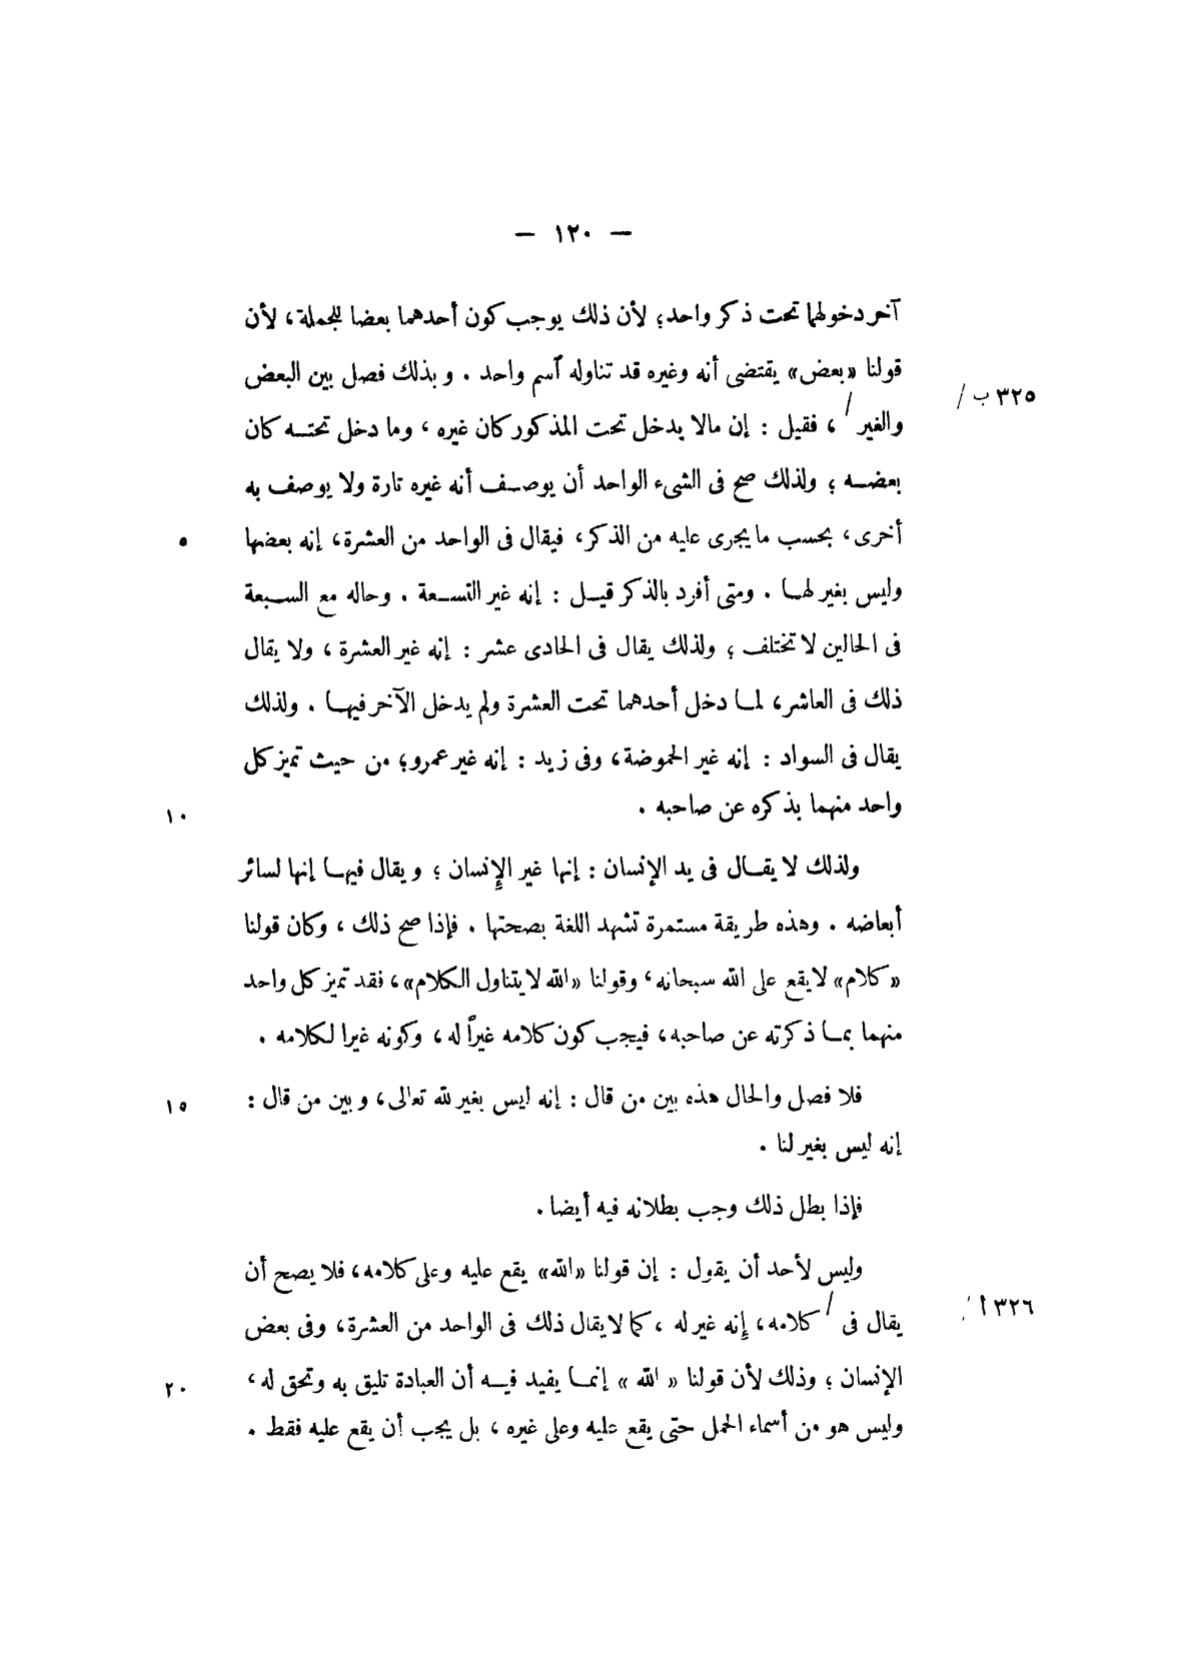 — ١٢٠ —
آخر دخولهما تحت ذكر واحد؛ لأن ذلك يوجب كون أحدهما بعضا للجملة، لأن
قولنا «بعض» يقتضى أنه وغيره قد تناوله ٱسم واحد . وبذلك فصل بين البعض
٣٢٥ ب /
والغير / ، فقيل : إن مالا يدخل تحت المذكور كان غيره ، وما دخل تحتــه كان
بعضــه ؛ ولذلك صح فى الشىء الواحد أن يوصــف أنه غيره تارة ولا يوصف به
أخرى ، بحسب ما يجرى عليه من الذكر، فيقال فى الواحد من العشرة، إنه بعضها
٥
وليس بغير لهــا . ومتى أفرد بالذكر قيــل : إنه غير التســعة . وحاله مع الســبعة
فى الحالين لا تختلف ؛ ولذلك يقال فى الحادى عشر : إنه غير العشرة ، ولا يقال
ذلك فى العاشر، لمــا دخل أحدهما تحت العشرة ولم يدخل الآخر فيهــا . ولذلك
يقال فى السواد : إنه غير الحموضة، وفى زيد : إنه غير عمرو؛ من حيث تميز كل
واحد منهما بذكره عن صاحبه .
١٠
ولذلك لا يقــال فى يد الإنسان : إنها غير الإِنسان ؛ ويقال فيهــا إنها لسائر
أبعاضه . وهذه طريقة مستمرة تشهد اللغة بصحتها . فإذا صح ذلك ، وكان قولنا
«كلام» لا يقع على الله سبحانه، وقولنا «الله لا يتناول الكلام»، فقد تميز كل واحد
منهما بمــا ذكرته عن صاحبه، فيجب كون كلامه غيراً له ، وكونه غيرا لكلامه .
فلا فصل والحال هذه بين من قال : إنه ليس بغير لله تعالى، وبين من قال :
١٥
إنه ليس بغير لنا .
فإذا بطل ذلك وجب بطلانه فيه أيضا .
وليس لأحد أن يقول : إن قولنا «الله» يقع عليه وعلى كلامه، فلا يصح أن
٣٢٦ أ
يقال فى / كلامه، إنه غير له ، كما لا يقال ذلك فى الواحد من العشرة، وفى بعض
الإنسان ؛ وذلك لأن قولنا « الله » إنمــا يفيد فيــه أن العبادة تليق به وتحق له ،
٢٠
وليس هو من أسماء الجمل حتى يقع عليه وعلى غيره ، بل يجب أن يقع عليه فقط .